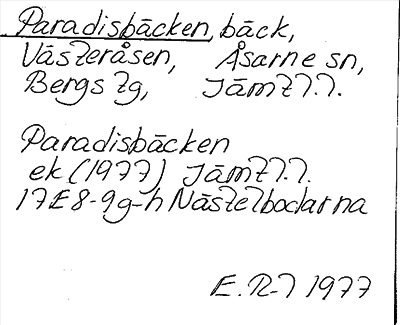 Paradisbäcken, bäck,
Västeråsen, Åsarne sn,
Bergs tg, Jämtl.l.
Paradisbäcken
ek (1977) Jämtl.l.
17E8-9g-h Nästelbodarna
E. R-l 1977